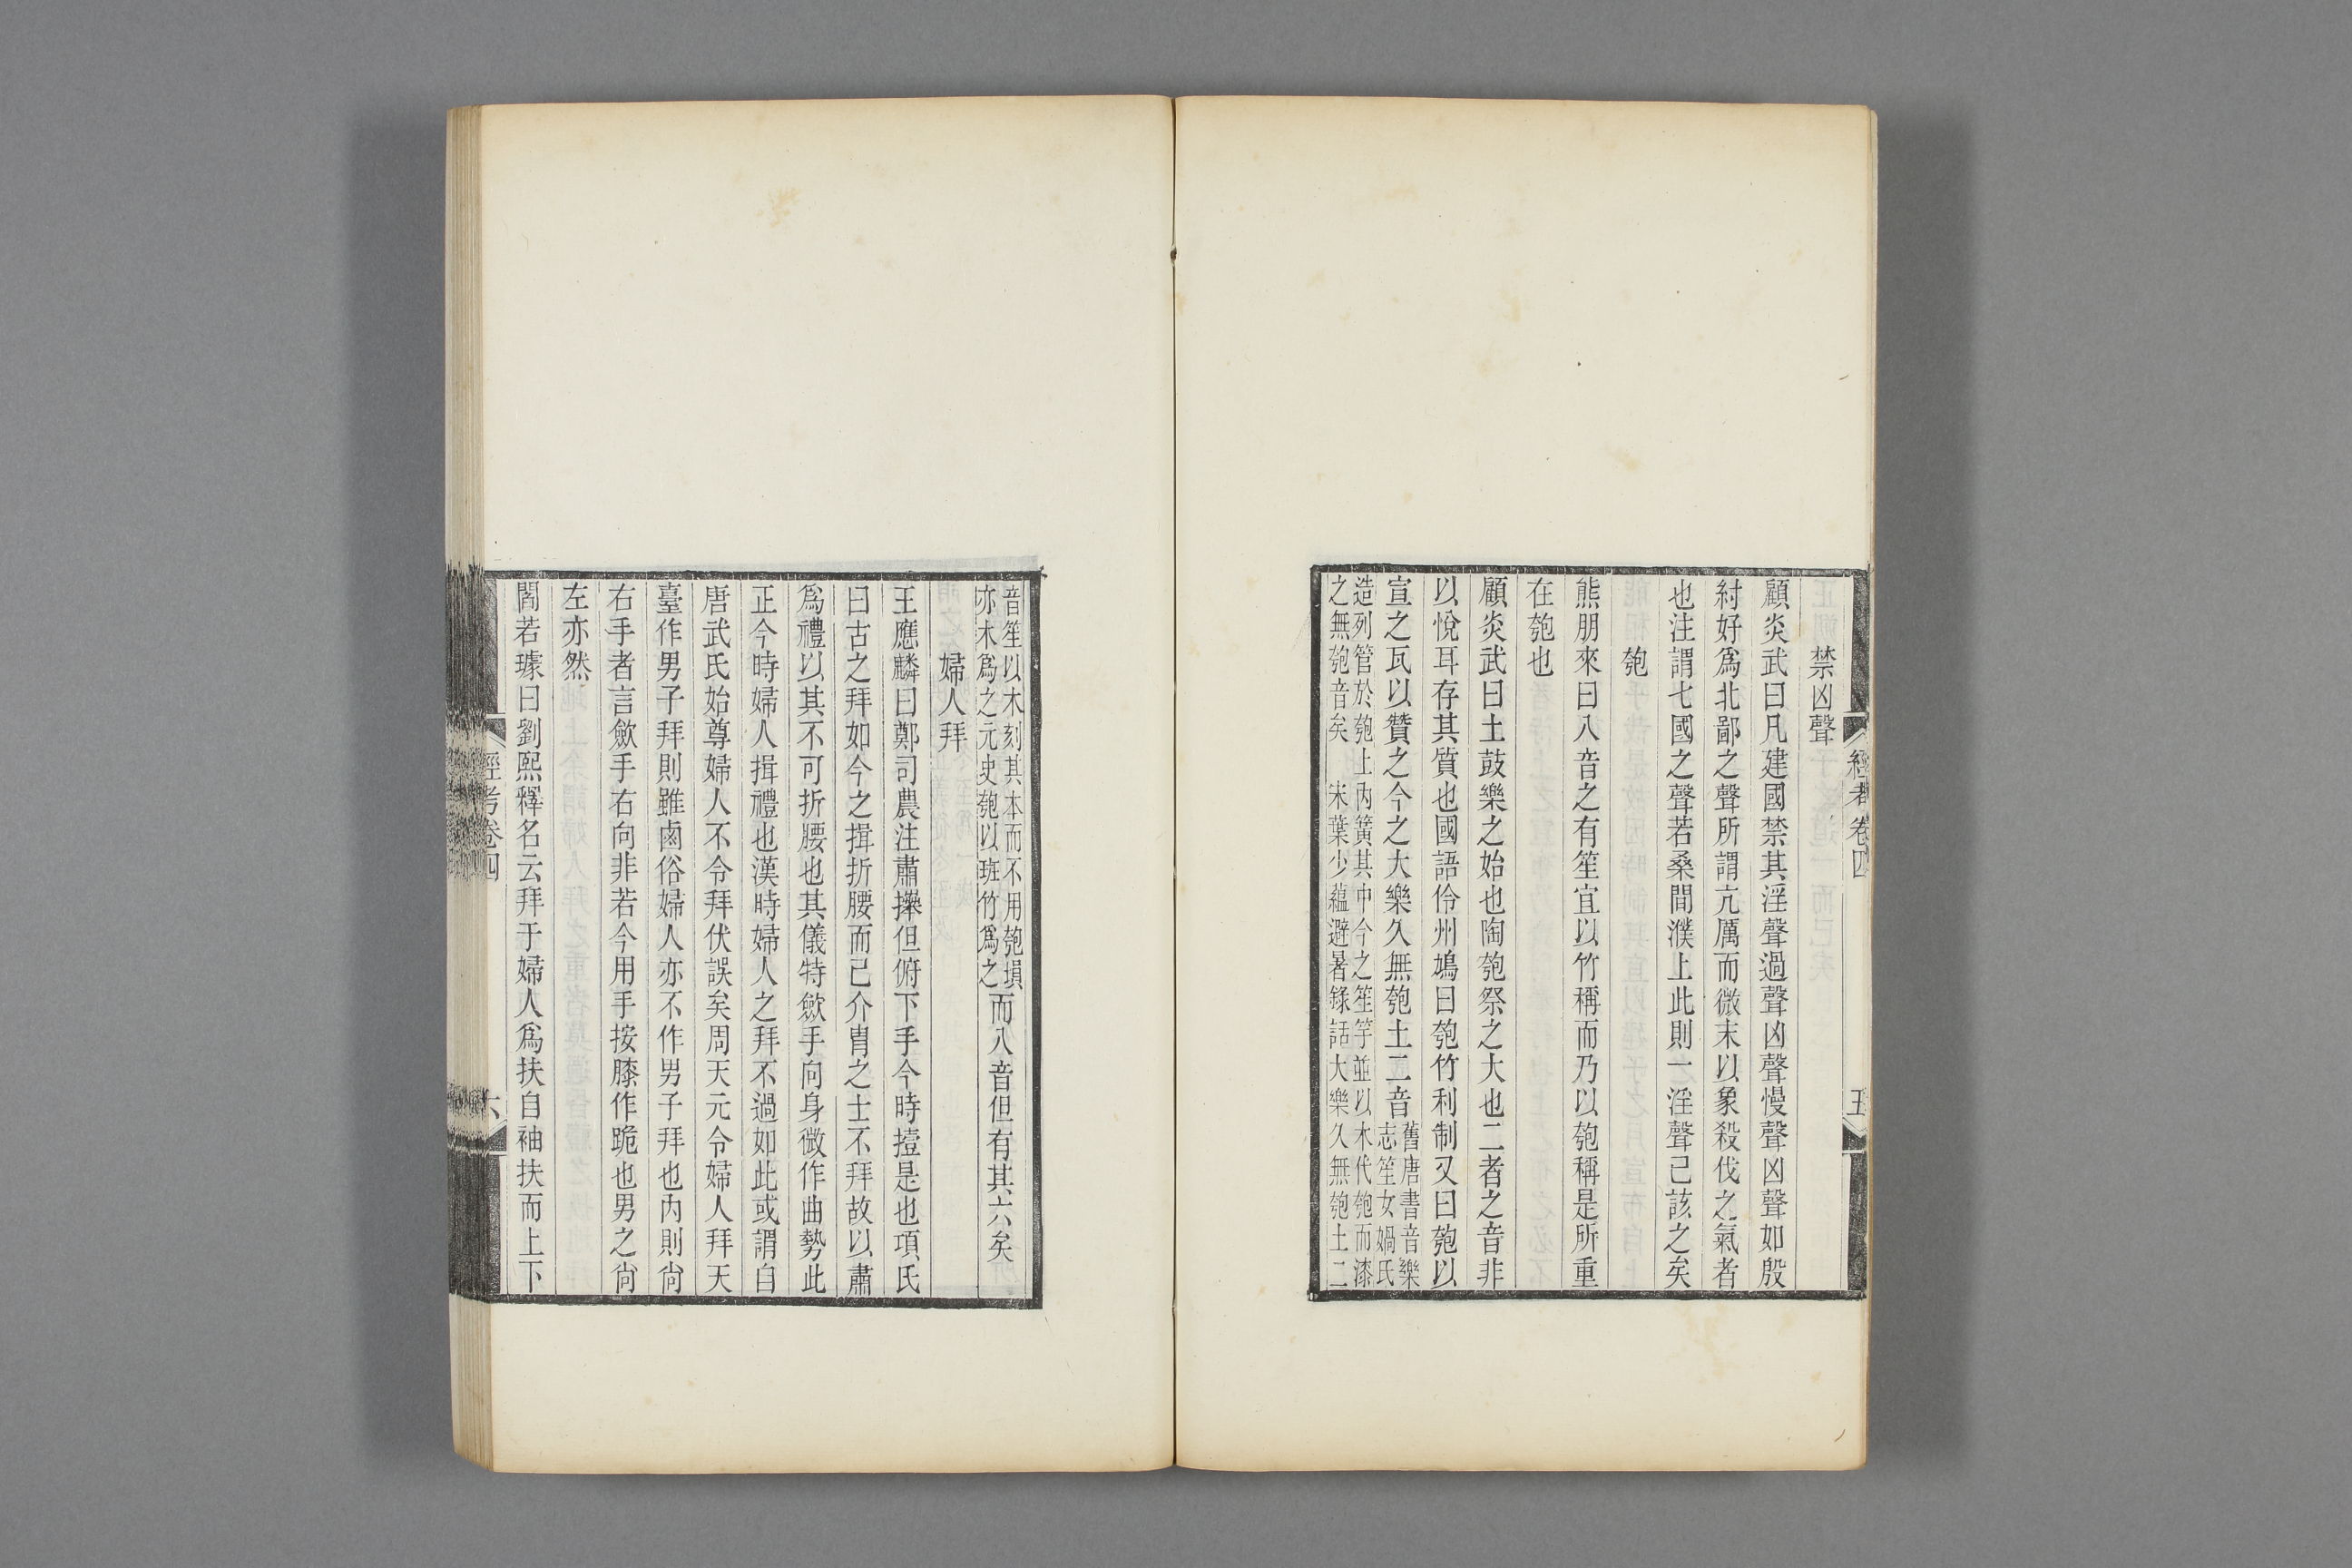 經考卷四
五
禁凶聲
顧炎武曰凡建國禁其淫聲過聲凶聲慢聲凶聲如殷
紂好爲北鄙之聲所謂亢厲而微末以象殺伐之氣者
也注謂七國之聲若桑間濮上此則一淫聲已該之矣
匏
熊朋來曰八音之有笙宜以竹稱而乃以匏稱是所重
在匏也
顧炎武曰土鼓樂之始也陶匏祭之大也二者之音非
以悅耳存其質也國語伶州鳩曰匏竹利制又曰匏以
宣之瓦以贊之今之大樂久無匏土二音舊唐書音樂志笙女媧氏
造列管於匏上內簧其中今之笙竽並以木代匏而漆
之無匏音矣 宋葉少蘊避暑錄話大樂久無匏土二
音笙以木刻其本而不用匏塤
亦木爲之元史匏以班竹爲之而八音但有其六矣
婦人拜
王應麟曰鄭司農注肅𢷎但俯下手今時撎是也項氏
曰古之拜如今之揖折腰而已介冑之士不拜故以肅
爲禮以其不可折腰也其儀特斂手向身微作曲勢此
正今時婦人揖禮也漢時婦人之拜不過如此或謂自
唐武氏始尊婦人不令拜伏誤矣周天元令婦人拜天
臺作男子拜則雖鹵俗婦人亦不作男子拜也內則尙
右手者言斂手右向非若今用手按膝作跪也男之尙
左亦然
閻若璩曰劉熙釋名云拜于婦人爲扶自袖扶而上下
經考卷四
六